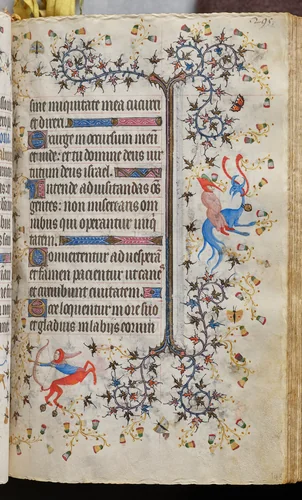 295.
sine iniquitate mea cucurri
et direxi
Exurge in occursum meū
et uide: et tu domine deus uir
tutum deus israel.
Intende ad uisitandas oēs
gentes: non miserearis om
nibus qui operantur iniqui
tatem.
Conuertentur ad uesperā
et famem pacientur ut canes
et circuibunt ciuitatem.
Ecce loquentur in ore suo
et gladius in labijs eorum